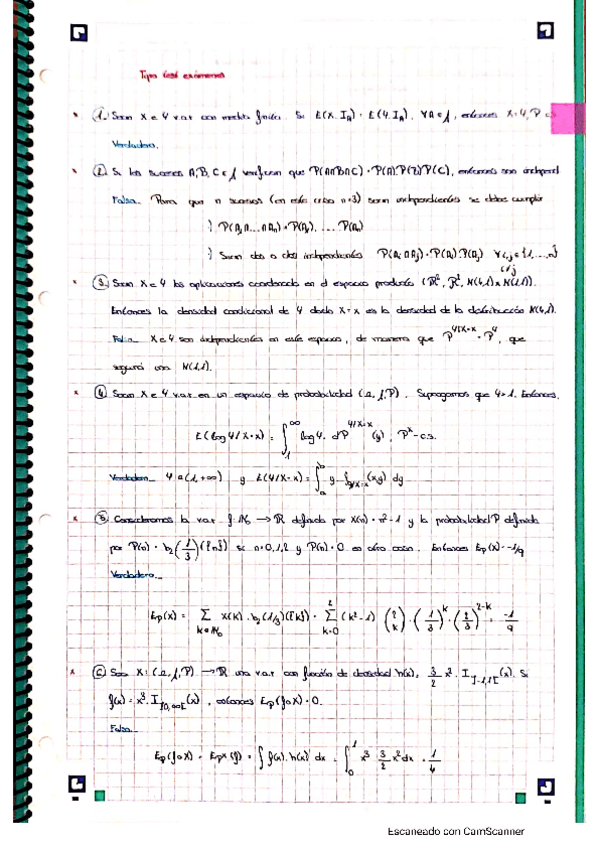 Tipo test exámenes
1. Sean X e Y v.a.r con media finita. Si E(X·I_A) = E(Y·I_A), ∀A∈𝒜, entonces X=Y, P-c.s
Verdadero.
2. Si los sucesos A, B, C ∈ 𝒜 verifican que P(A∩B∩C) = P(A)P(B)P(C), entonces son independ
Falsa. Para que n sucesos (en este caso n=3) sean independientes se debe cumplir
) P(A₁∩...∩Aₙ) = P(A₁)...P(Aₙ)
) Sean dos a dos independientes P(Aᵢ∩Aⱼ) = P(Aᵢ)·P(Aⱼ) ∀i,j∈{1,...,n}
i≠j
3. Sean X e Y las aplicaciones coordenadas en el espacio producto
Entonces la densidad condicional de Y dado X=x es la densidad de la distribución
Falsa. X e Y son independientes en este espacio, de manera que P^{Y/X=x} = P^Y, que
seguirá una N(1,1).
4. Sean X e Y v.a.r. en un espacio de probabilidad (Ω, 𝒜, P). Supongamos que Y>1. Entonces,
E(log Y/X=x) = ∫₁^∞ log y · dP^{Y/X=x}(y), P^X-c.s.
Verdadera. y E(Y/X=x) = ∫ y · f_{Y/X=x}(x,y) dy
5. Consideremos la v.a.r. definida por X(n) = n²-1 y la probabilidad P definida
por P(n) = b₂(1/3)({n}) si n=0,1,2 y P(n)=0 en otro caso. Entonces E_P(X) = -1/9
Verdadero.
E_P(X) = Σ_{k∈ℕ₀} X(k)·b₂(1/3)({k}) = Σ_{k=0}^{2} (k²-1) (2 k)·(1/3)^k·(2/3)^{2-k} = -1/9
6. Sea X: (Ω, 𝒜, P) → ℝ una v.a.r con función de densidad h(x) = 3/2 x²·I_{]-1,1[}(x). Si
f(x) = x³·I_{]0,∞[}(x), entonces E_P(f∘X) = 0.
Falsa.
E_P(f∘X) = E_{P^X}(f) = ∫ f(x)·h(x) dx = ∫₀¹ x³ 3/2 x² dx = 1/4
Escaneado con CamScanner